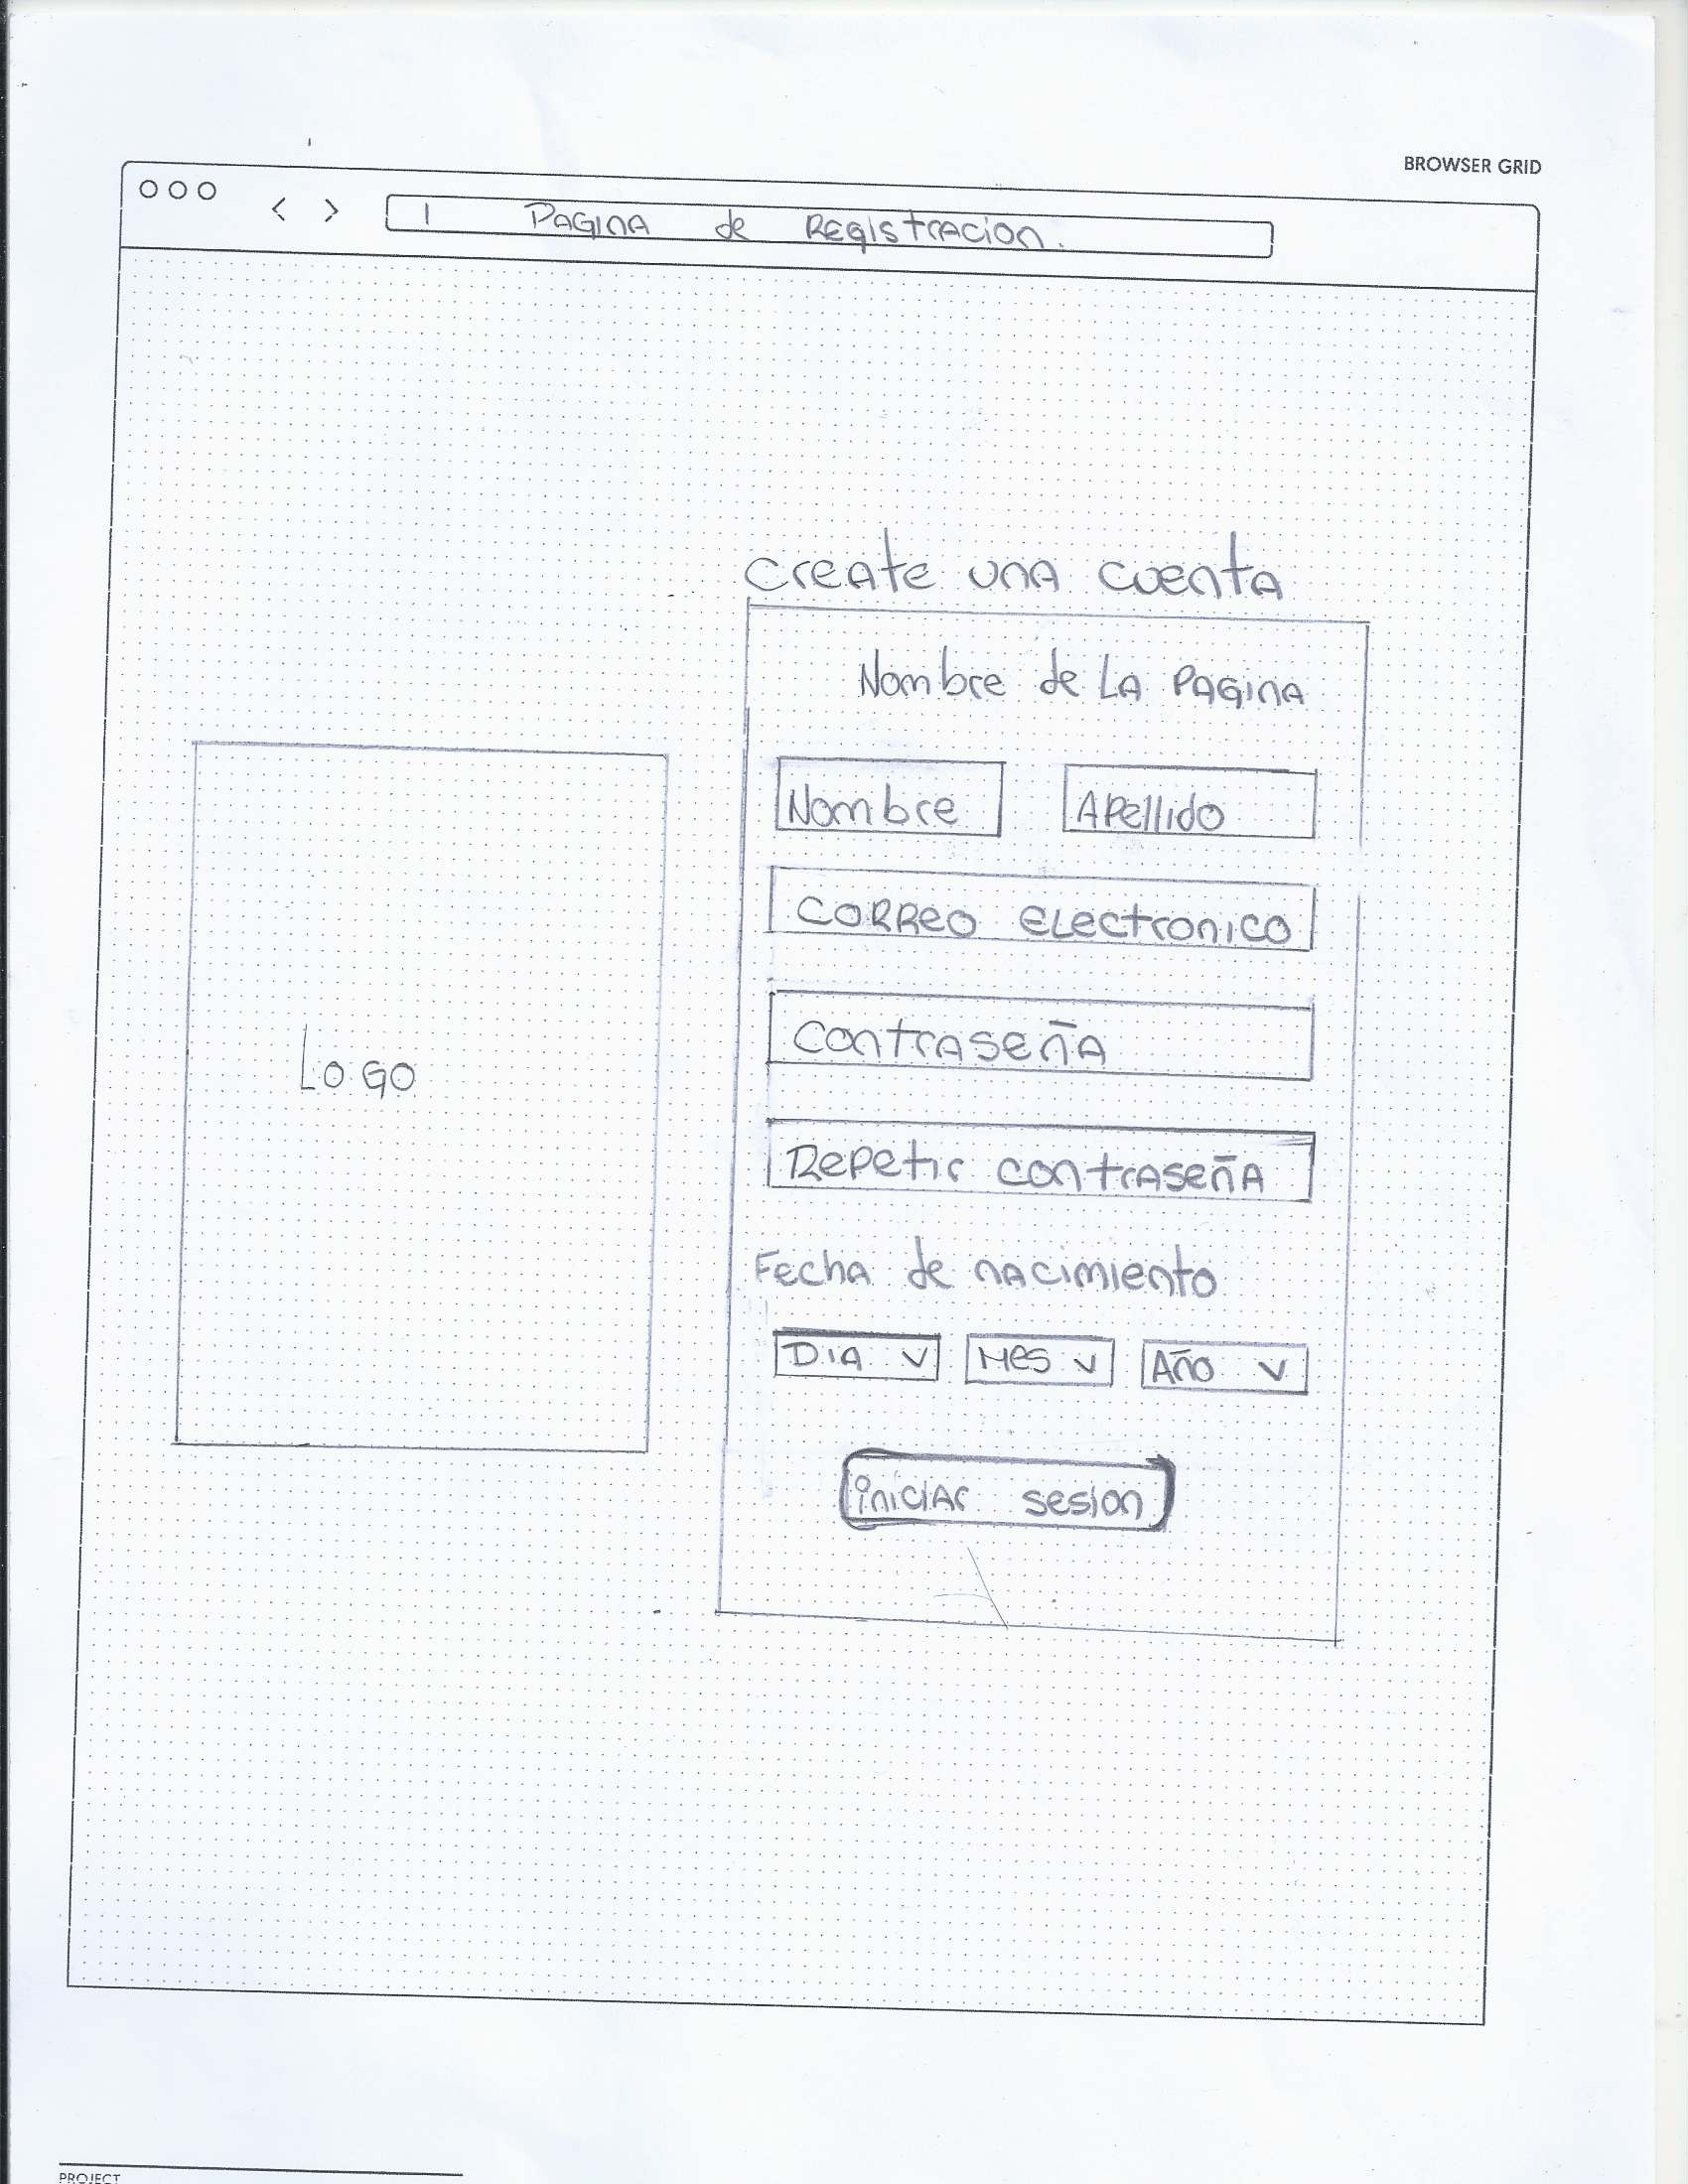 BROWSER GRID
1 PAGINA de REGIStrACION.
CREAte UNA CUENtA
Nombre de LA PAGINA
Nombre APellido
CORREO ELectronico
CONtRASEÑA
LOGO
REPEtir CONtRASEÑA
FECHA de NACIMIENTO
DIA v MES v AÑO v
INICIAR SESION
PROJECT